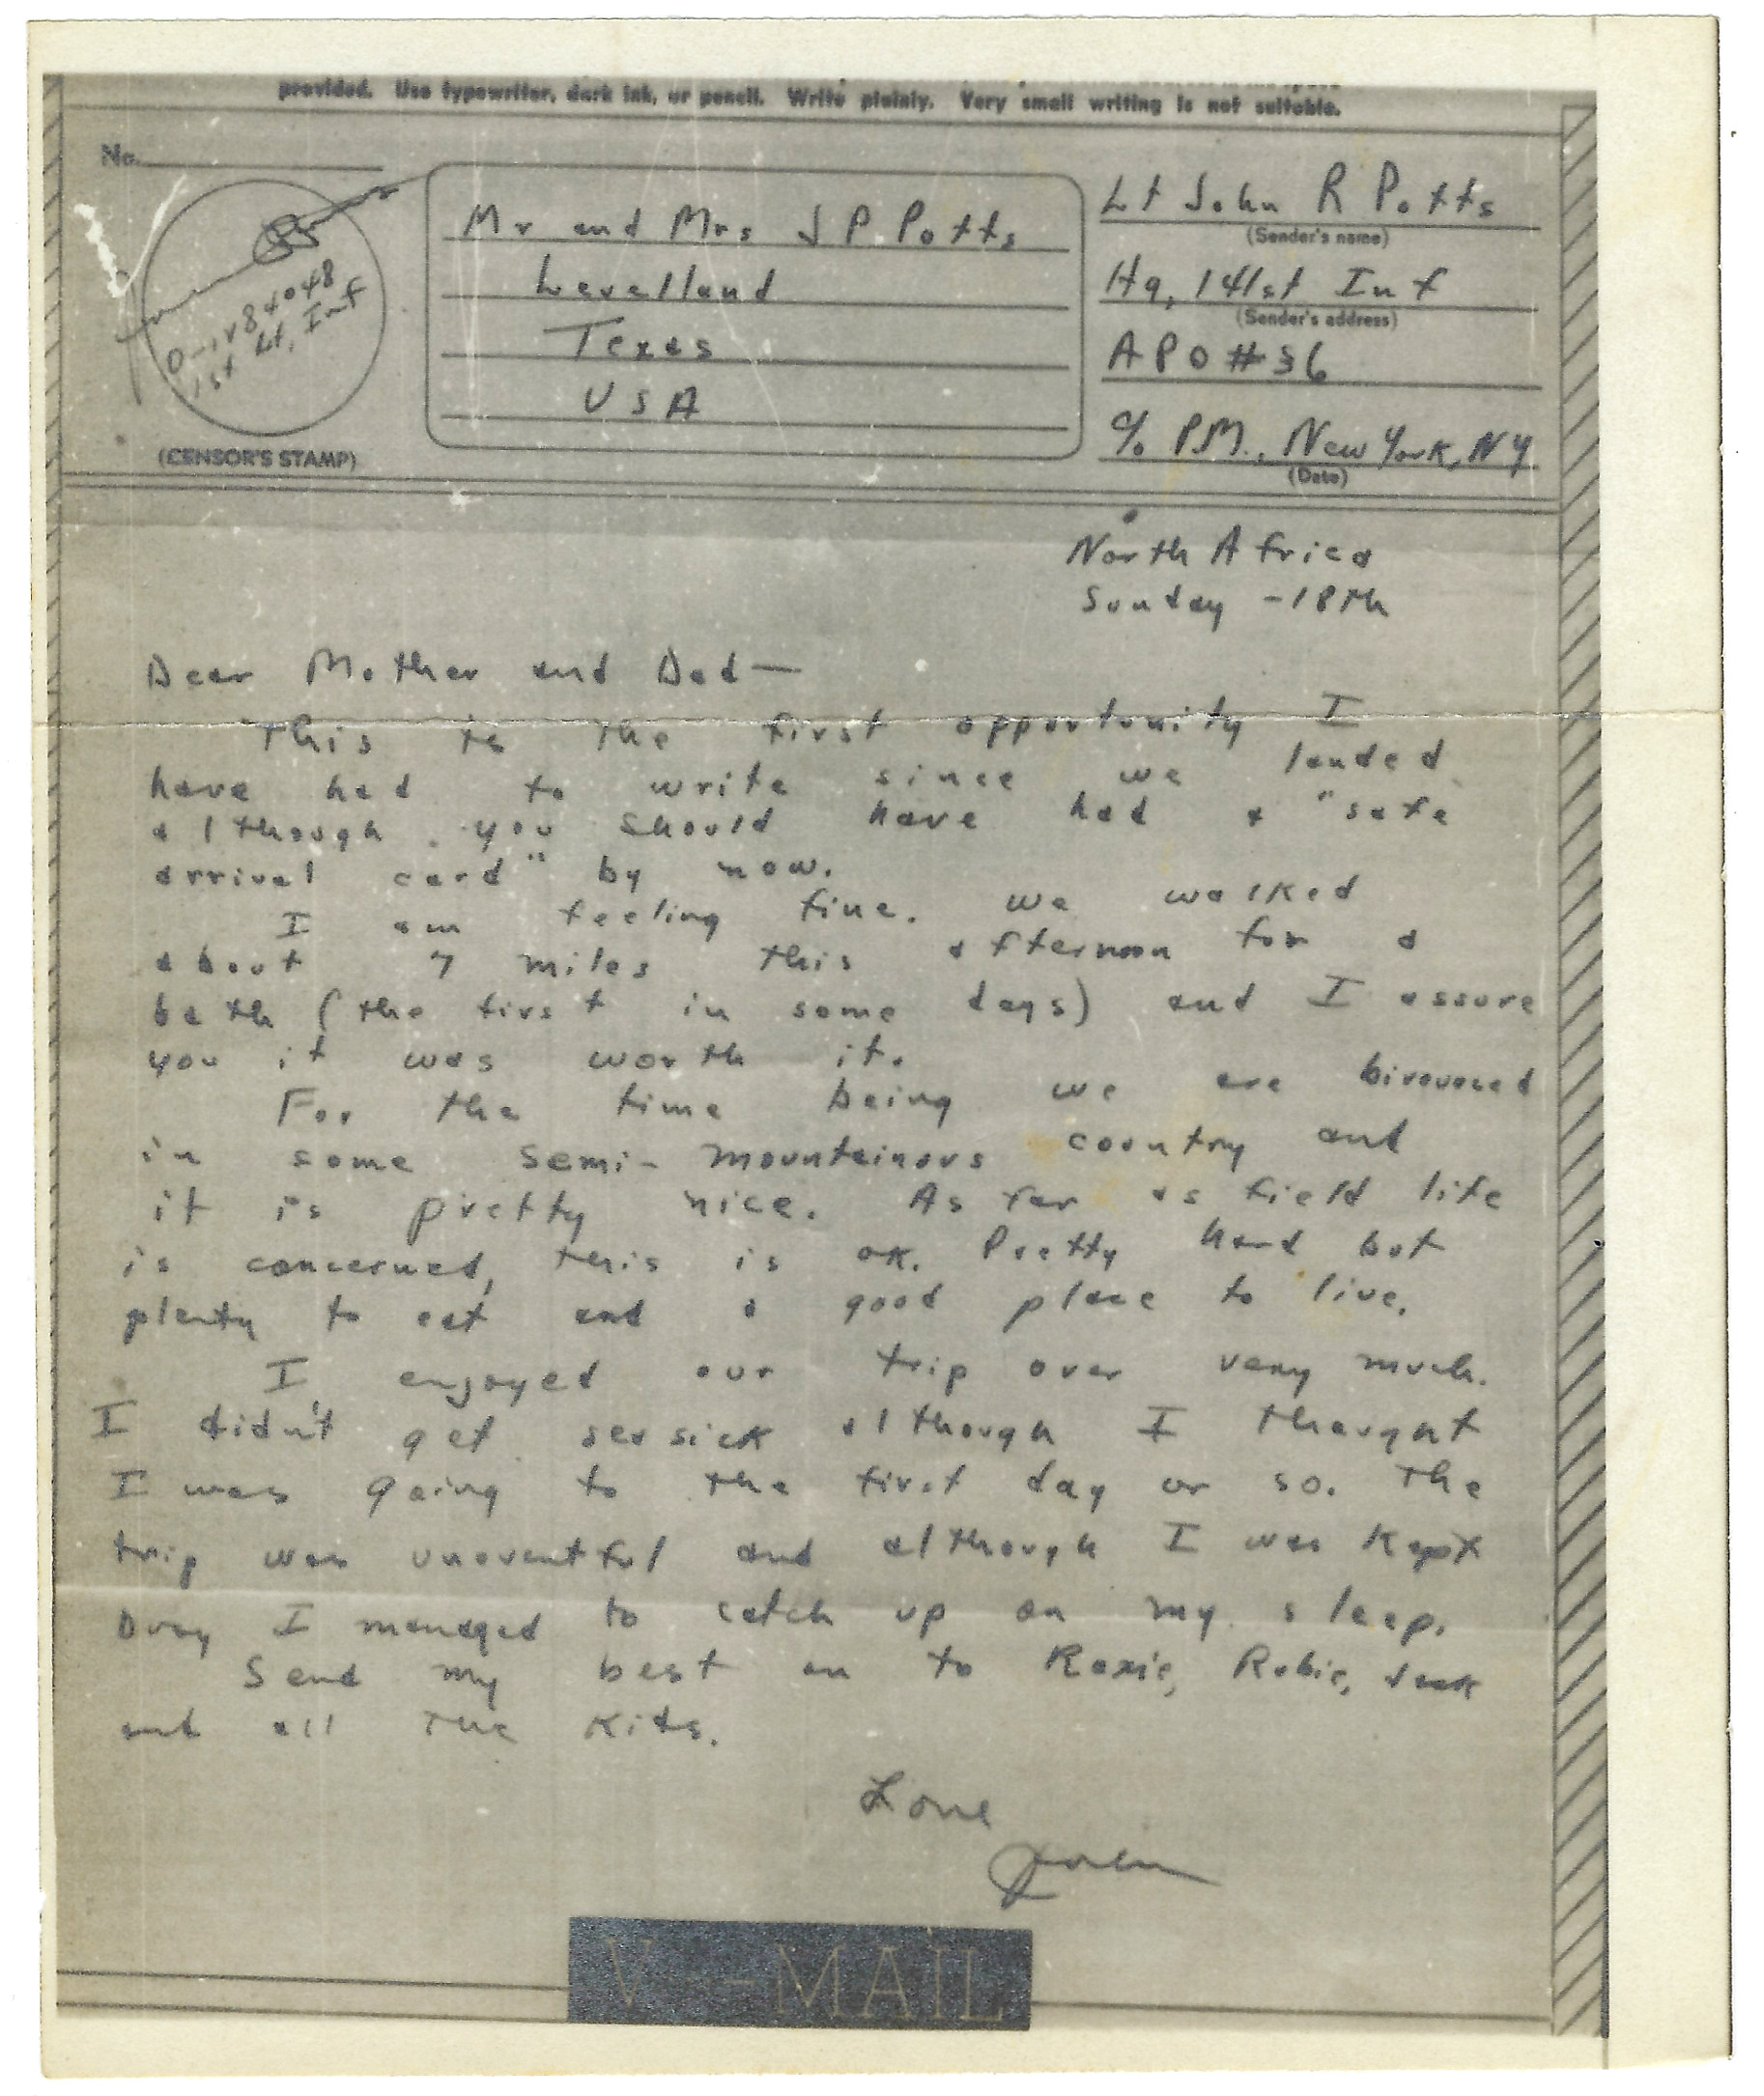 provided. Use typewriter, dark ink, or pencil. Write plainly. Very small writing is not suitable.
No.
O-1284048
1st Lt, Inf
(CENSOR'S STAMP)
Mr and Mrs J P Potts
Levelland
Texas
USA
Lt John R Potts
(Sender's name)
Hq, 141st Inf
(Sender's address)
APO #36
c/o PM., New York, NY
(Date)
North Africa
Sunday - 18th
Dear Mother and Dad—
This is the first opportunity I
have had to write since we landed
although you should have had a "safe
arrival card" by now.
I am feeling fine. We walked
about 7 miles this afternoon for a
bath (the first in some days) and I assure
you it was worth it.
For the time being we are bivouaced
in some semi-mountainous country and
it is pretty nice. As far as field life
is concerned, this is OK. Pretty hard but
plenty to eat and a good place to live.
I enjoyed our trip over very much.
I didn't get seasick although I thought
I was going to the first day or so. The
trip was uneventful and although I was kept
busy I managed to catch up on my sleep.
Send my best on to Roxie, Robie, Jack
and all the kids.
Love
John
V-MAIL